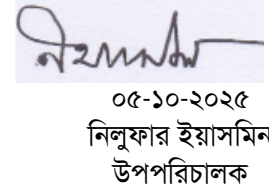 ০৫-১০-২০২৫
নিলুফার ইয়াসমিন
উপপরিচালক